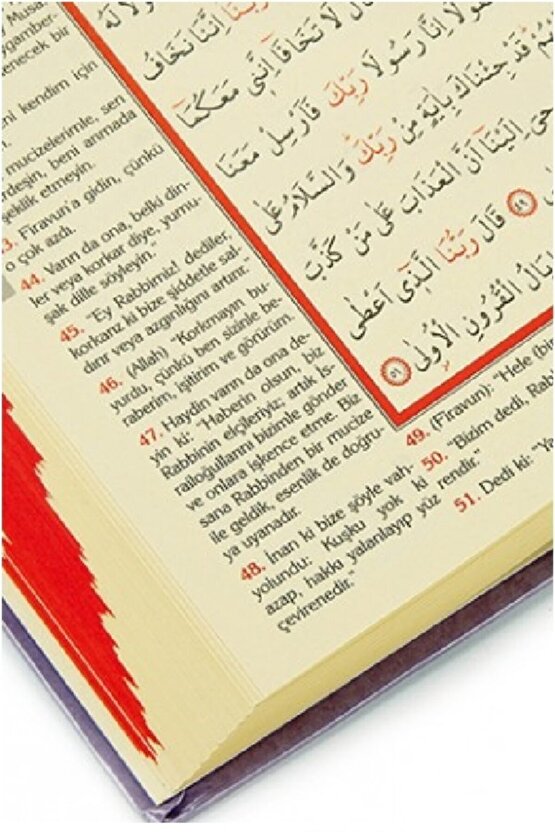 Musa
gamber-
enecek bir
kendim için
mucizelerimle, sen
deşin, beni anmada
etmeyin.
Firavun'a gidin, çünkü
o çok azdı.
44. Varın da ona, belki din-
ler veya korkar diye, yumu-
şak dille söyleyin."
45. "Ey Rabbimiz! dediler,
korkarız ki bize şiddetle sal-
dırır veya azgınlığını artırır."
46. (Allah) "Korkmayın bu-
yurdu, çünkü ben sizinle be-
raberim, işitirim ve görürüm.
47. Haydin varın da ona de-
yin ki: "Haberin olsun, biz
Rabbinin elçileriyiz; artık İs-
railoğullarını bizimle gönder
ve onlara işkence etme. Biz
sana Rabbinden bir mucize
ile geldik, esenlik de doğru-
ya uyanadır.
48. İnan ki bize şöyle vah-
yolundu: Kuşku yok ki
azap, hakkı yalanlayıp yüz
çevirenedir."
رَبَّنَا اِنَّنَا نَخَافُ
قَالَ لَا تَخَافَا اِنَّنِى مَعَكُمَا
اِنَّا رَسُولَا رَبِّكَ فَاَرْسِلْ مَعَنَا
قَدْ جِئْنَاكَ بِاٰيَةٍ مِنْ رَبِّكَ وَالسَّلَامُ عَلٰى
اِلَيْنَٓا اَنَّ الْعَذَابَ عَلٰى مَنْ كَذَّبَ
٤٩ قَالَ رَبُّنَا الَّذٖٓى اَعْطٰى
بَالُ الْقُرُونِ الْاُولٰى ٥١
49. (Firavun): "Hele (bir
50. "Bizim dedi, Rab
rendir."
51. Dedi ki: "Ya